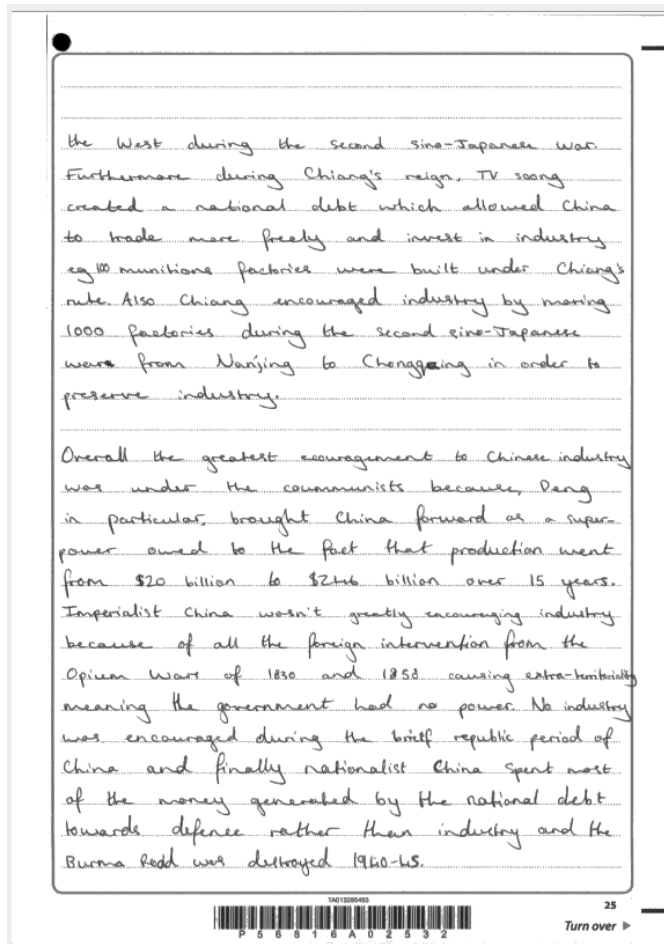 the West during the second sino-Japanese war.
Furthermore during Chiang's reign, TV soong
created a national debt which allowed China
to trade more freely and invest in industry
eg 100 munitions factories were built under Chiang's
rule. Also Chiang encouraged industry by moving
1000 factories during the second sino-Japanese
war from Nanjing to Chongqing in order to
preserve industry.
Overall the greatest ecouragement to Chinese industry
was under the coummunists because, Deng
in particular, brought China forward as a super-
power owed to the fact that production went
from $20 billion to billion over 15 years.
Imperialist China wasn't greatly encouraging industry
because of all the foreign intervention from the
Opium Wars of 1830 and 1858 causing extra-territoriality
meaning the government had no power. No industry
was encouraged during the brief republic period of
China and finally nationalist China spent most
of the money generated by the national debt
towards defence rather than industry and the
Burma Road was destroyed 1940-45.
TA013286453
25
P56816A02532
Turn over